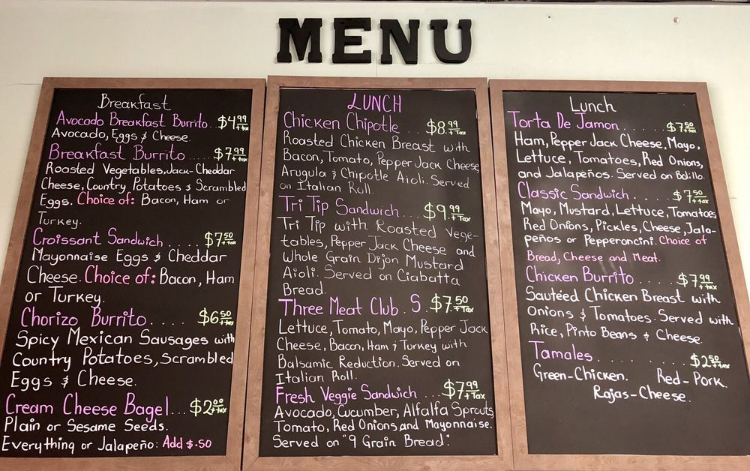 MENU
Breakfast
Avocado Breakfast Burrito. $4.99 +Tax
Avocado, Eggs & Cheese.
Breakfast Burrito..... $7.99 +Tax
Roasted Vegetables, Jack-Cheddar
Cheese, Country Potatoes & Scrambled
Eggs. Choice of: Bacon, Ham or
Turkey.
Croissant Sandwich..... $7.50 +Tax
Mayonnaise Eggs & Cheddar
Cheese. Choice of: Bacon, Ham
or Turkey.
Chorizo Burrito..... $6.50 +Tax
Spicy Mexican Sausages with
Country Potatoes, Scrambled
Eggs & Cheese.
Cream Cheese Bagel... $2.00 +Tax
Plain or Sesame Seeds.
Everything or Jalapeño: Add $.50
LUNCH
Chicken Chipotle... $8.99 +Tax
Roasted Chicken Breast with
Bacon, Tomato, Pepper Jack Cheese
Arugula & Chipotle Aioli. Served
on Italian Roll.
Tri Tip Sandwich... $9.99 +Tax
Tri Tip with Roasted Vege-
tables, Pepper Jack Cheese and
Whole Grain Dijon Mustard
Aioli. Served on Ciabatta
Bread.
Three Meat Club. S. $7.50 +Tax
Lettuce, Tomato, Mayo, Pepper Jack
Cheese, Bacon, Ham & Turkey with
Balsamic Reduction. Served on
Italian Roll.
Fresh Veggie Sandwich.... $7.99 +Tax
Avocado, Cucumber, Alfalfa Sprouts
Tomato, Red Onions and Mayonnaise.
Served on "9 Grain Bread".
Lunch
Torta De Jamon...... $7.50 +Tax
Ham, Pepper Jack Cheese, Mayo,
Lettuce, Tomatoes, Red Onions,
and Jalapeños. Served on Bolillo.
Classic Sandwich..... $7.50 +Tax
Mayo, Mustard, Lettuce, Tomatoes
Red Onions, Pickles, Cheese, Jala-
peños or Pepperoncini. Choice of
Bread, Cheese and Meat.
Chicken Burrito..... $7.99 +Tax
Sautéed Chicken Breast with
Onions & Tomatoes. Served with
Rice, Pinto Beans & Cheese.
Tamales......... $2.50 +Tax
Green-Chicken. Red-Pork.
Rajas-Cheese.